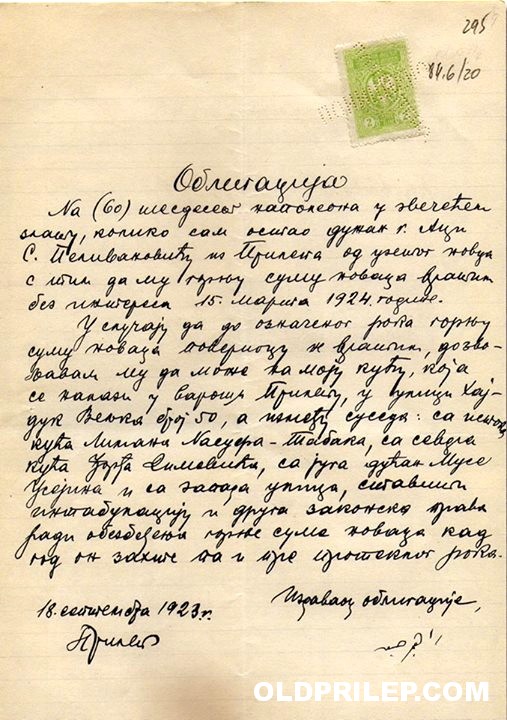 295
14.6/20
2 2
Облигација
На (60) шесдесет наполеона у звечећем
злату, колико сам остао дужан г. Аци
С. Пеливановићу из Прилепа од узетог новца
с тим да му горњу суму новаца вратим
без интереса 15. марта 1924. године.
У случају да до означеног рока горњу
суму новаца повериоцу не вратим, дозво-
љавам му да може на моју кућу, која
се налази у вароши Прилепу, у улици Хај-
дук Вељка број 50, а између суседа: са истока
кућа Лимана Насуфа-Табака, са севера
кућа Ђорђа Симовића, са југа дућан Мусе
и са запада улица, ставити
интабулацију и друга законска права
ради обезбеђења горње суме новаца кад
год он захте па и пре протеклог рока.
18. септембра 1923 г.
Прилеп
Издавалац облигације,
OLDPRILEP.COM